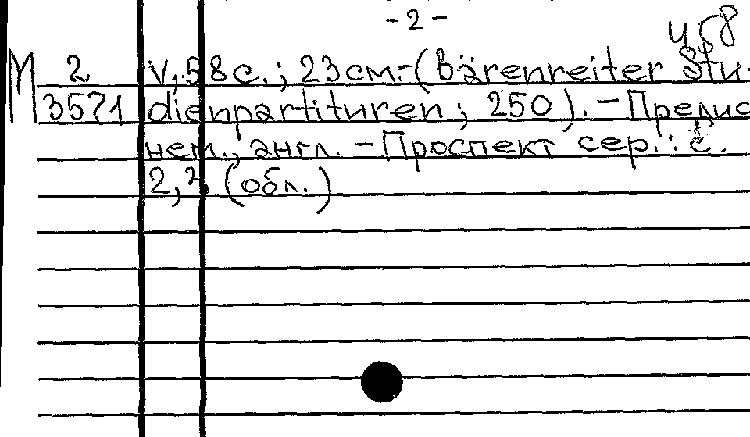 -2-
М 2 V, 58 с. ; 23 см.-(Bärenreiter Stu-
3571 dienpartituren ; 250). - Предис
нем., англ. - Проспект сер.: с.
2, (обл.)